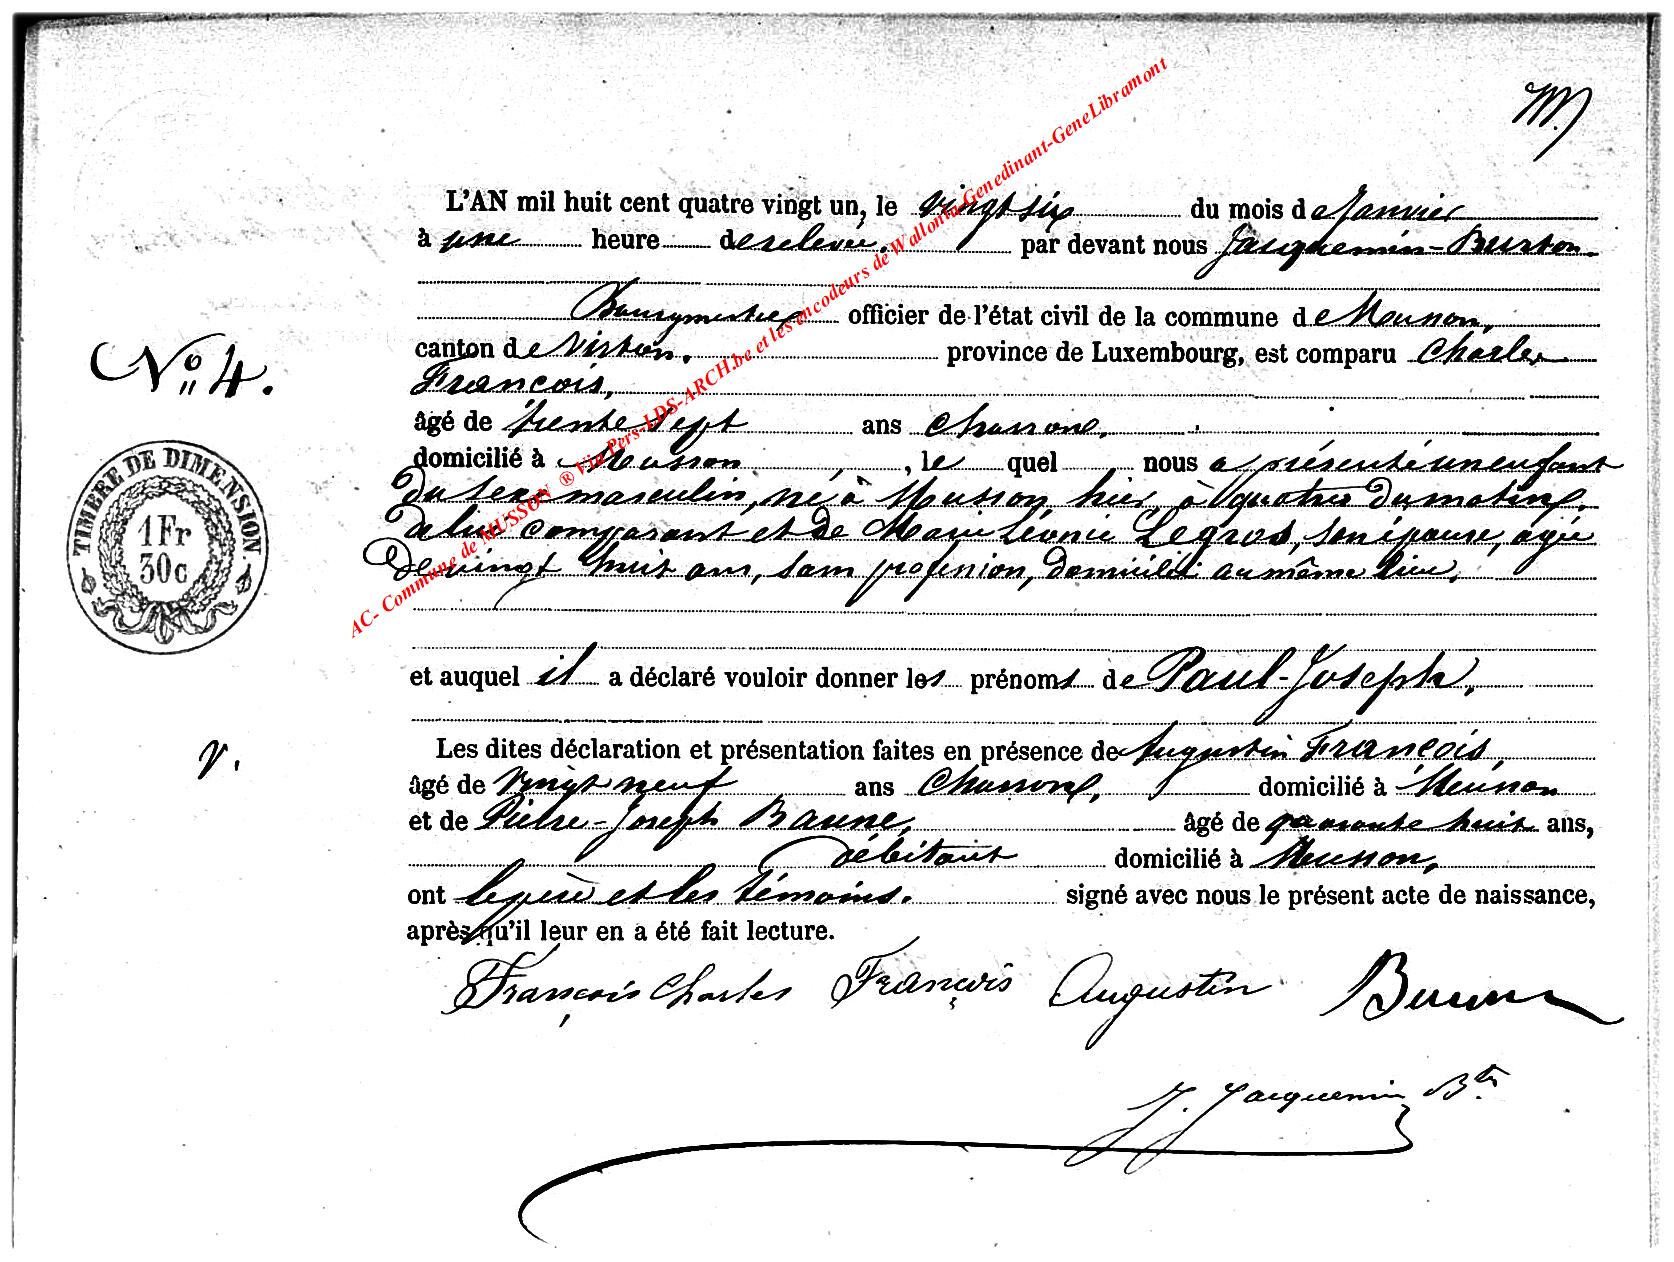 M.
L'AN mil huit cent quatre vingt un, le vingt six du mois de Janvier
à une heure de relevée. par devant nous Jacquemin-Burton.
Bourgmestre officier de l'état civil de la commune de Musson,
canton de Virton. province de Luxembourg, est comparu Charles
François,
N° 4.
âgé de trente sept ans charron, 
domicilié à Musson , le quel nous a présenté un enfant
du sexe masculin, né à Musson, hier à quatre du matin,
de lui comparant et de Marie Léonie Legros, son épouse, agée
de vingt huit ans, sans profession, domiciliée au même lieu,
TIMBRE DE DIMENSION.
1 Fr
30 c
et auquel il a déclaré vouloir donner les prénoms de Paul-Joseph,
Les dites déclaration et présentation faites en présence de Augustin François,
v.
âgé de vingt neuf ans charron, domicilié à Musson
et de Pierre-Joseph âgé de quarante huit ans,
débitant domicilié à Musson,
ont le père et les témoins. signé avec nous le présent acte de naissance,
après qu'il leur en a été fait lecture.
François Charles François Augustin
J. Jacquemin Btn
AC- Commune de MUSSON ® Via Pers-LDS-ARCH.be et les encodeurs de Wallonia-Genedinant-GeneLibramont